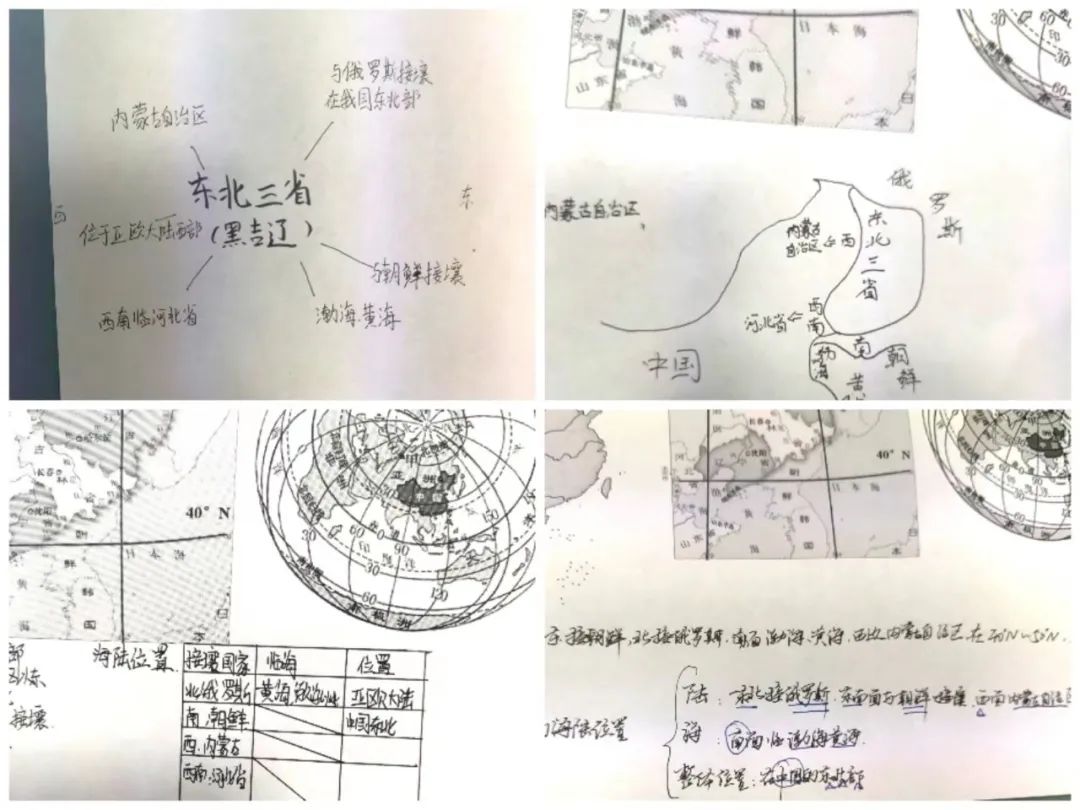 与俄罗斯接壤
在我国东北部
内蒙古自治区
东北三省
(黑吉辽)
东
西
位于亚欧大陆西部
与朝鲜接壤
西南临河北省
渤海 黄海
30
60
30
60
印
日 本 海
黄
海
鲜
韩
国
山东
日
本
俄
罗
斯
内蒙古自治区
东北三省
内蒙古
自治区 ⇐ 西
河北省 ⇐ 西南
南
渤海
黄
朝鲜
中国
吉
长春
林
沈阳
朝
40°N
日 本 海
黄
鲜
韩
海
国
日
亚
洲
中国
150
120
90
60
30
0
30
60
印 度 洋
南 极 洲
海陆位置
接壤国家 临海 位置
北俄罗斯 黄海,渤海 亚欧大陆
南,朝鲜 中国东北
西.内蒙古
西南:河北省
部
接壤
长春
林
沈阳
朝
40°N
日 本 海
鲜
韩
国
山东
海
日
本
30
60
东接朝鲜,北接俄罗斯,南面渤海、黄海,西边内蒙古自治区在40°N~50°N.
海陆位置
陆:东北接俄罗斯,东南面与朝鲜接壤,西面内蒙古自治区
海:南面临渤海黄海.
整体位置:在中国的东北部